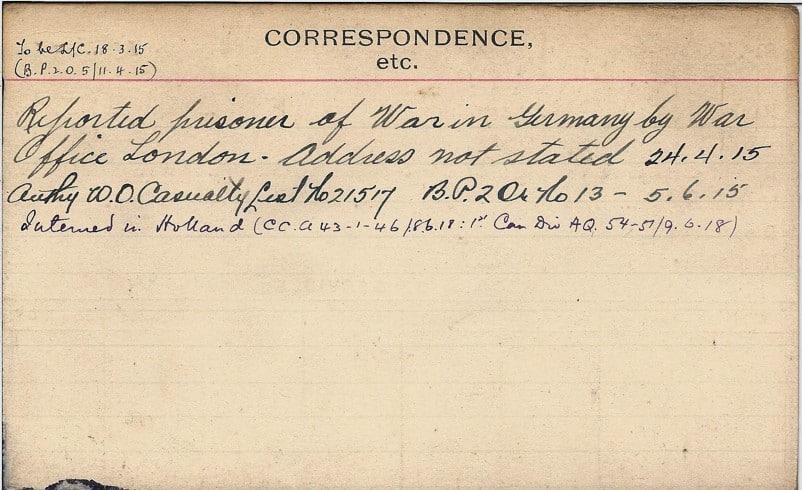 CORRESPONDENCE,
etc.
To be L/C. 18.3.15
(B.P.2.O.5/11.4.15)
Reported prisoner of War in Germany by War
Office London - Address not stated 24.4.15
Authy W.O. Casualty List No 21517 B.P. 2 Or No 13 - 5.6.15
Interned in Holland (CC.A 43-1-46/8.6.18: 1st Can Div AQ. 54-51/9.6.18)